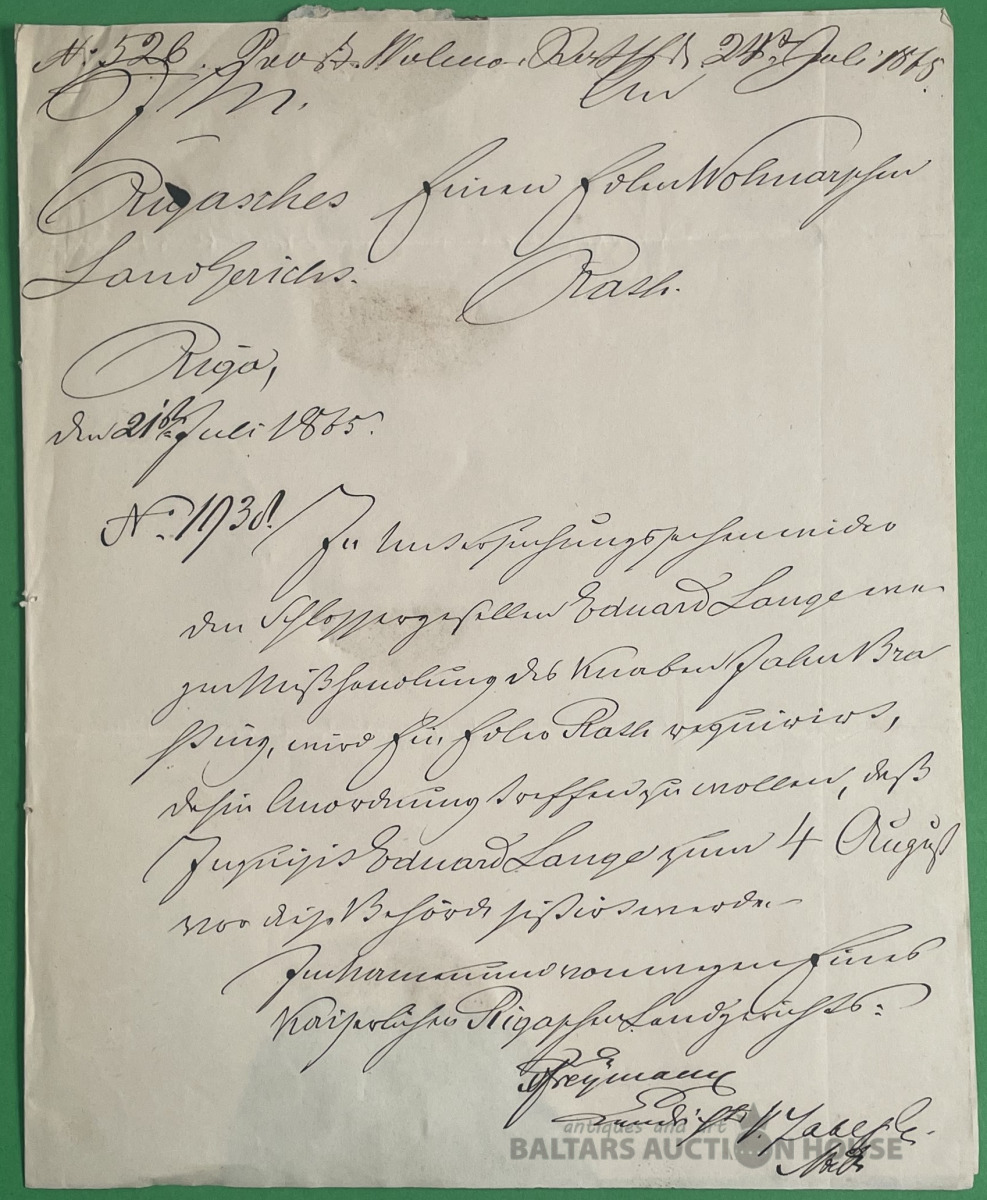 No. 526. Prod. Wolmar. Rath d 24st Juli 1865.
J. M. An
Rigasches Einen Edlen Wolmarschen
Landgericht. Rath.
Riga,
den 21sten Juli 1865.
No. 1938. In Untersuchungssachen wider
den Schlossergesellen Eduard Lange we-
gen Mißhandlung des Knaben Jahn Bra
sting, wird Ein Edler Rath requirirt,
dahin Anordnung treffen zu wollen, daß
Inquisit Eduard Lange zum 4 August
vor diese Behörde sistirt werde.
Im Namen und von wegen Eines
Kaiserlichen Rigaschen Landgerichts:
Freymann
antiques and art
BALTARS AUCTION HOUSE